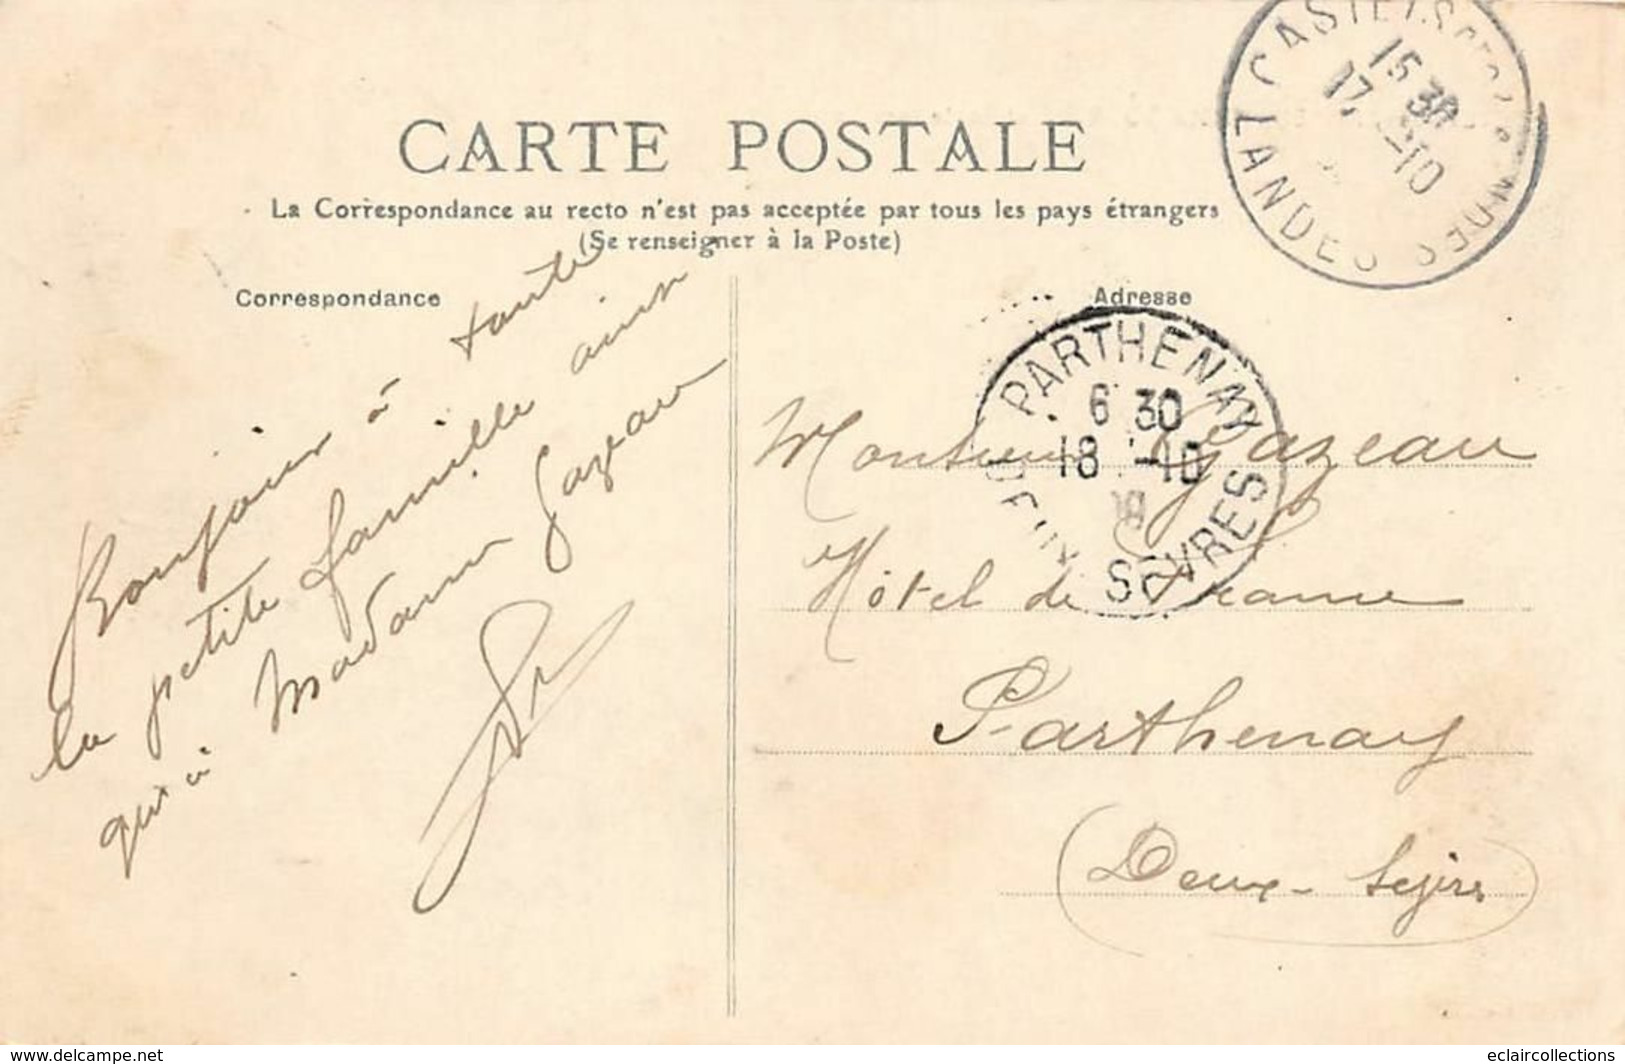 CARTE POSTALE
La Correspondance au recto n'est pas acceptée par tous les pays étrangers
(Se renseigner à la Poste)
Correspondance
Adresse
Bonjour à toute
la petite famille ainsi
qu'à Madame Gazeau
Monsieur Gazeau
Hôtel de France
Parthenay
(Deux-Sèvres)
PARTHENAY
6 30
18 -10
SEVRES
CASTETS
15 30
17 -10
LANDES
www.delcampe.net
eclaircollections